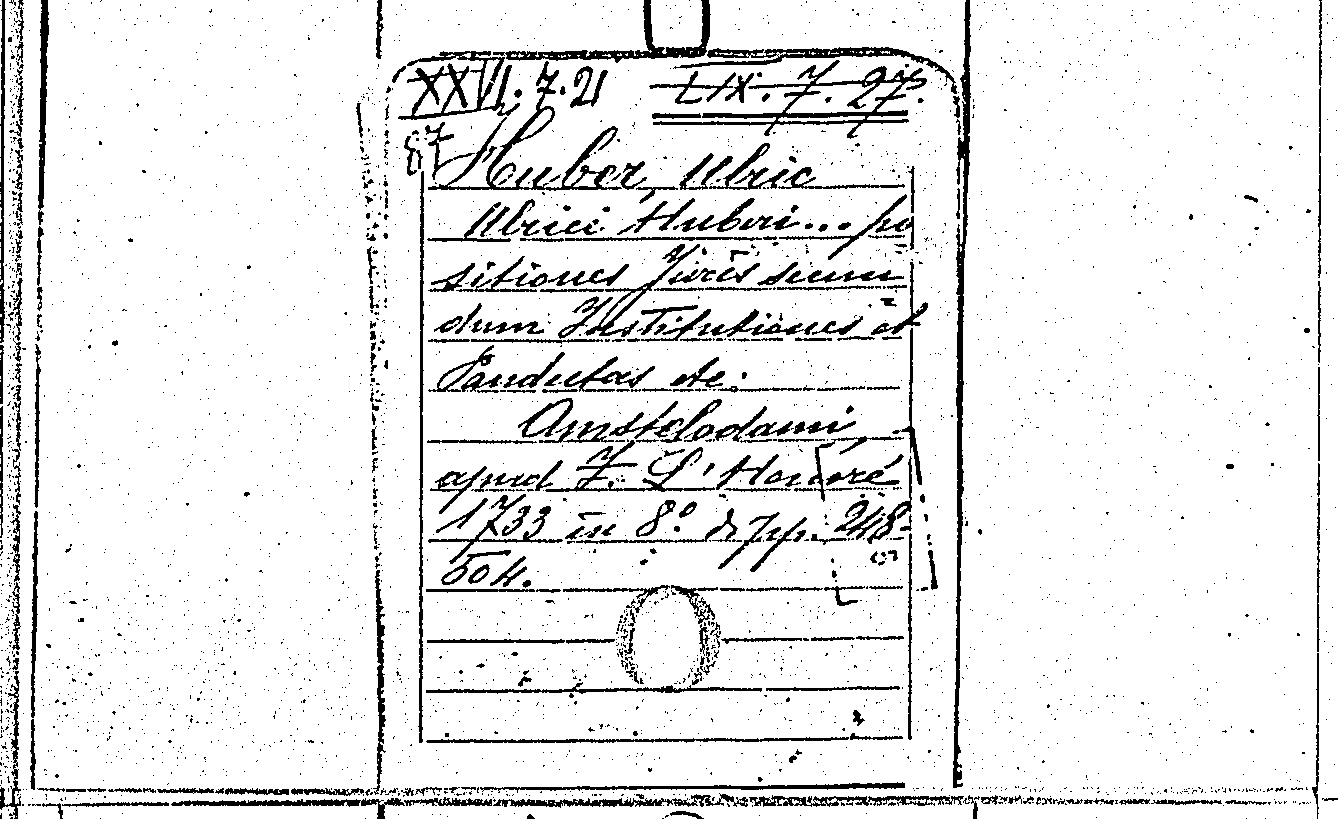 XXVII.7.21 LIX.7.27.
87
Huber, Ulric
Ulrici Huberi... po
sitiones Juris secun
dum Institutiones et
Pandectas etc.
Amstelodami,
apud F. L'Honoré
1733 in 8º di pp. 248-
504.